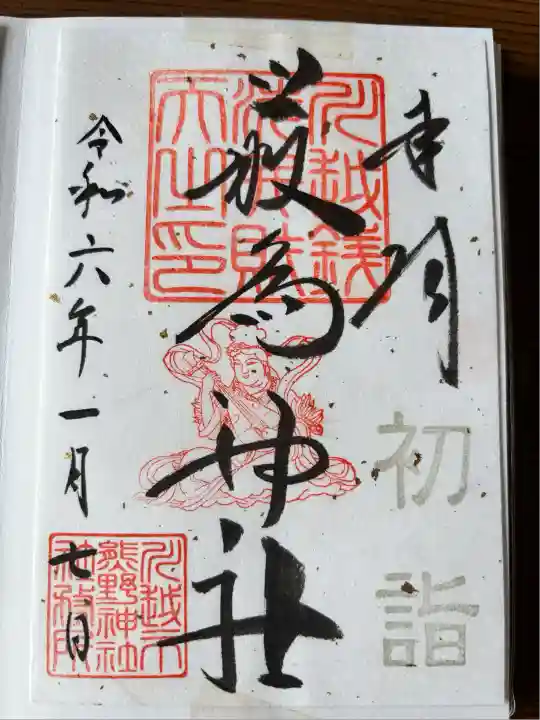 奉拝
初詣
川越銭
天之印
厳島神社
令和六年一月七日
川越市
熊野神社
社務所